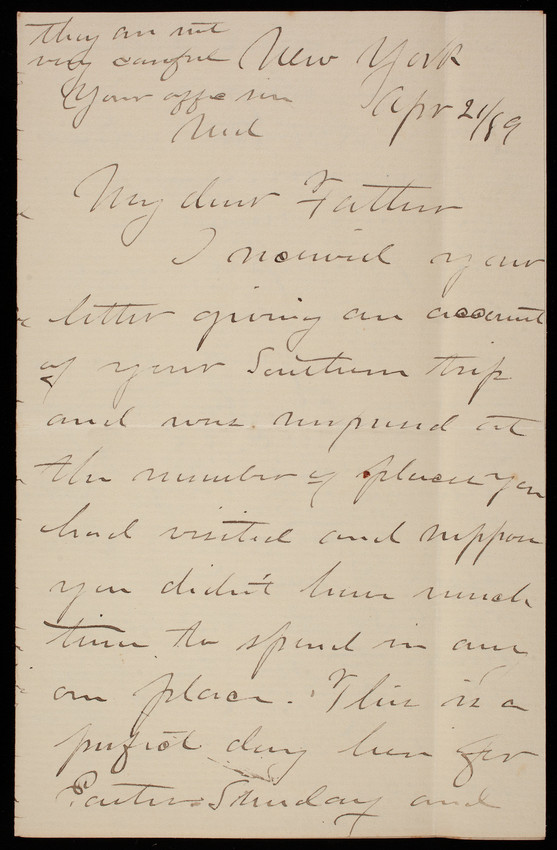 they are not
very careful
Your aff son
Ned
New York
Apr 21/89
My dear Father
I received your
letter giving an account
of your Southern trip
and was surprised at
the number of places you
had visited and suppose
you didn't have much
time to spend in any
one place. This is a
perfect day here for
Easter Sunday and